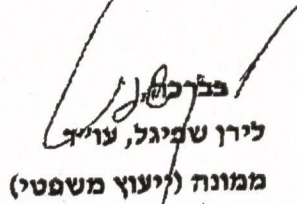 בברכה,
לירן שפיגל, עו"ד
ממונה (ייעוץ משפטי)